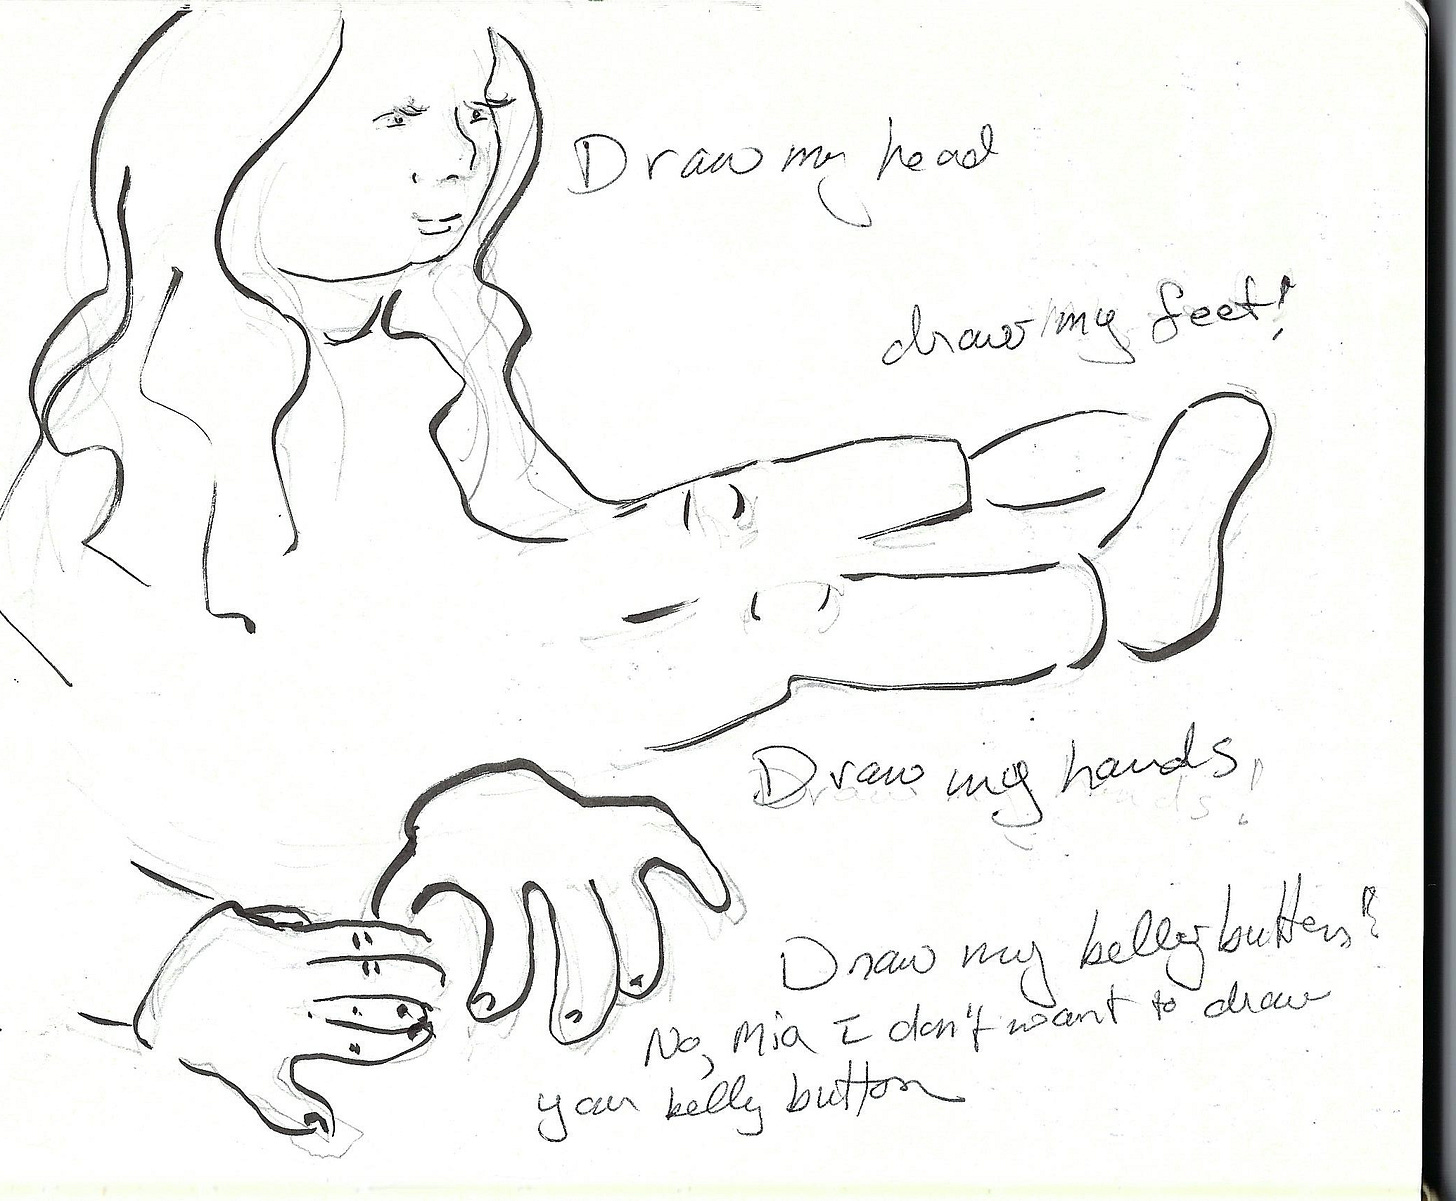 Draw my head
draw my feet!
Draw my hands!
Draw my belly button!
No, Mia I don't want to draw
your belly button